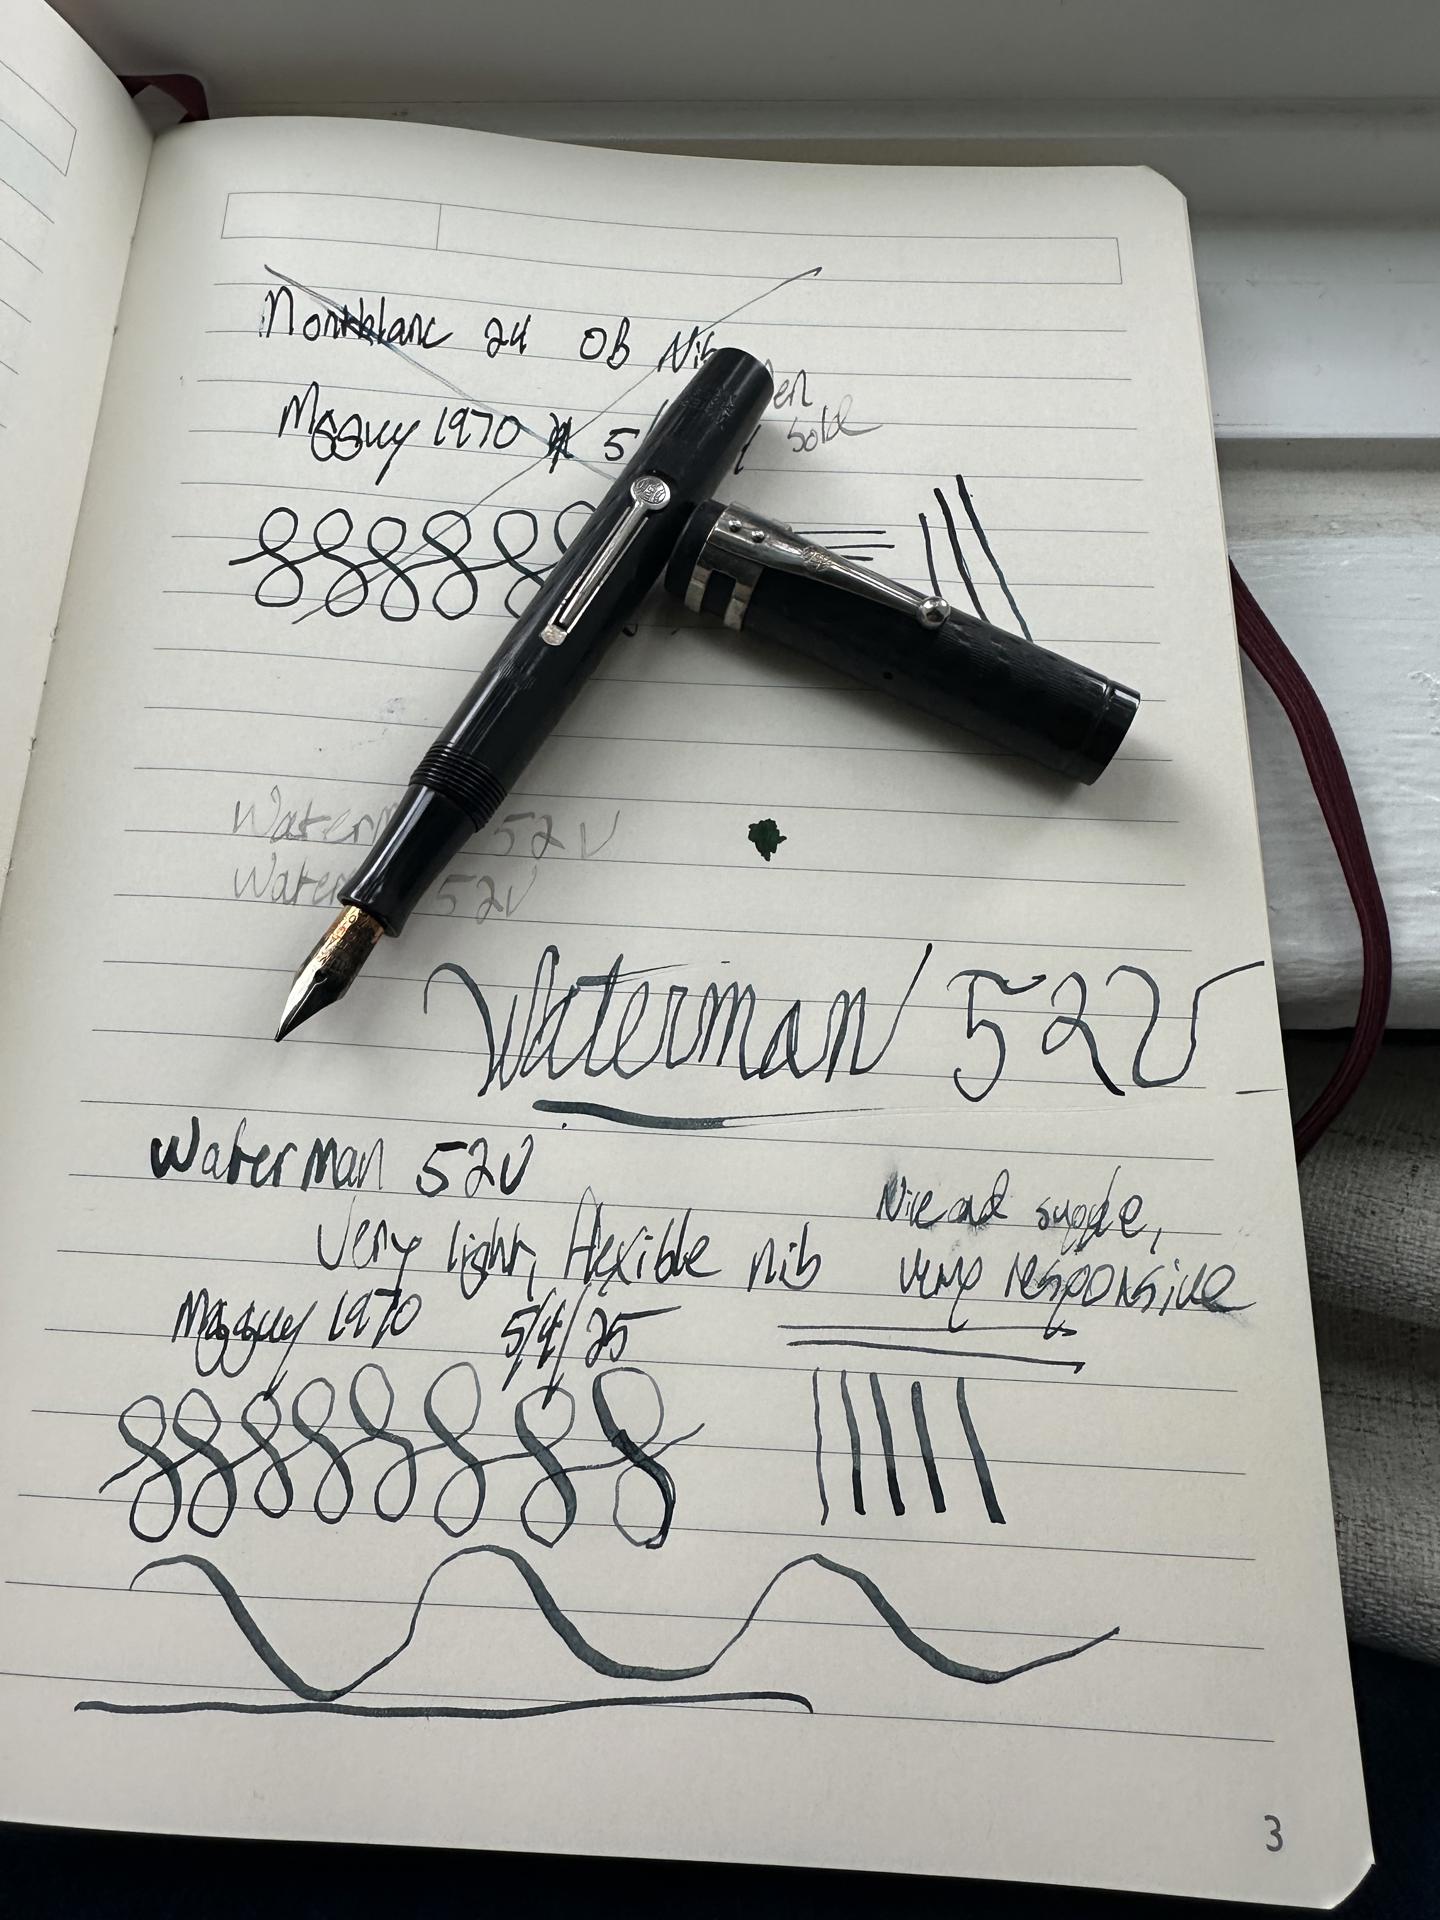 Montblanc 24 OB Nib
en
Mgguy 1970 5
Sold
Waterm 52V
Water 52V
Waterman 52V
Waterman 52V
Very light, flexible nib
Nice and supple,
very responsive
Mgguy 1970 5/4/25
3